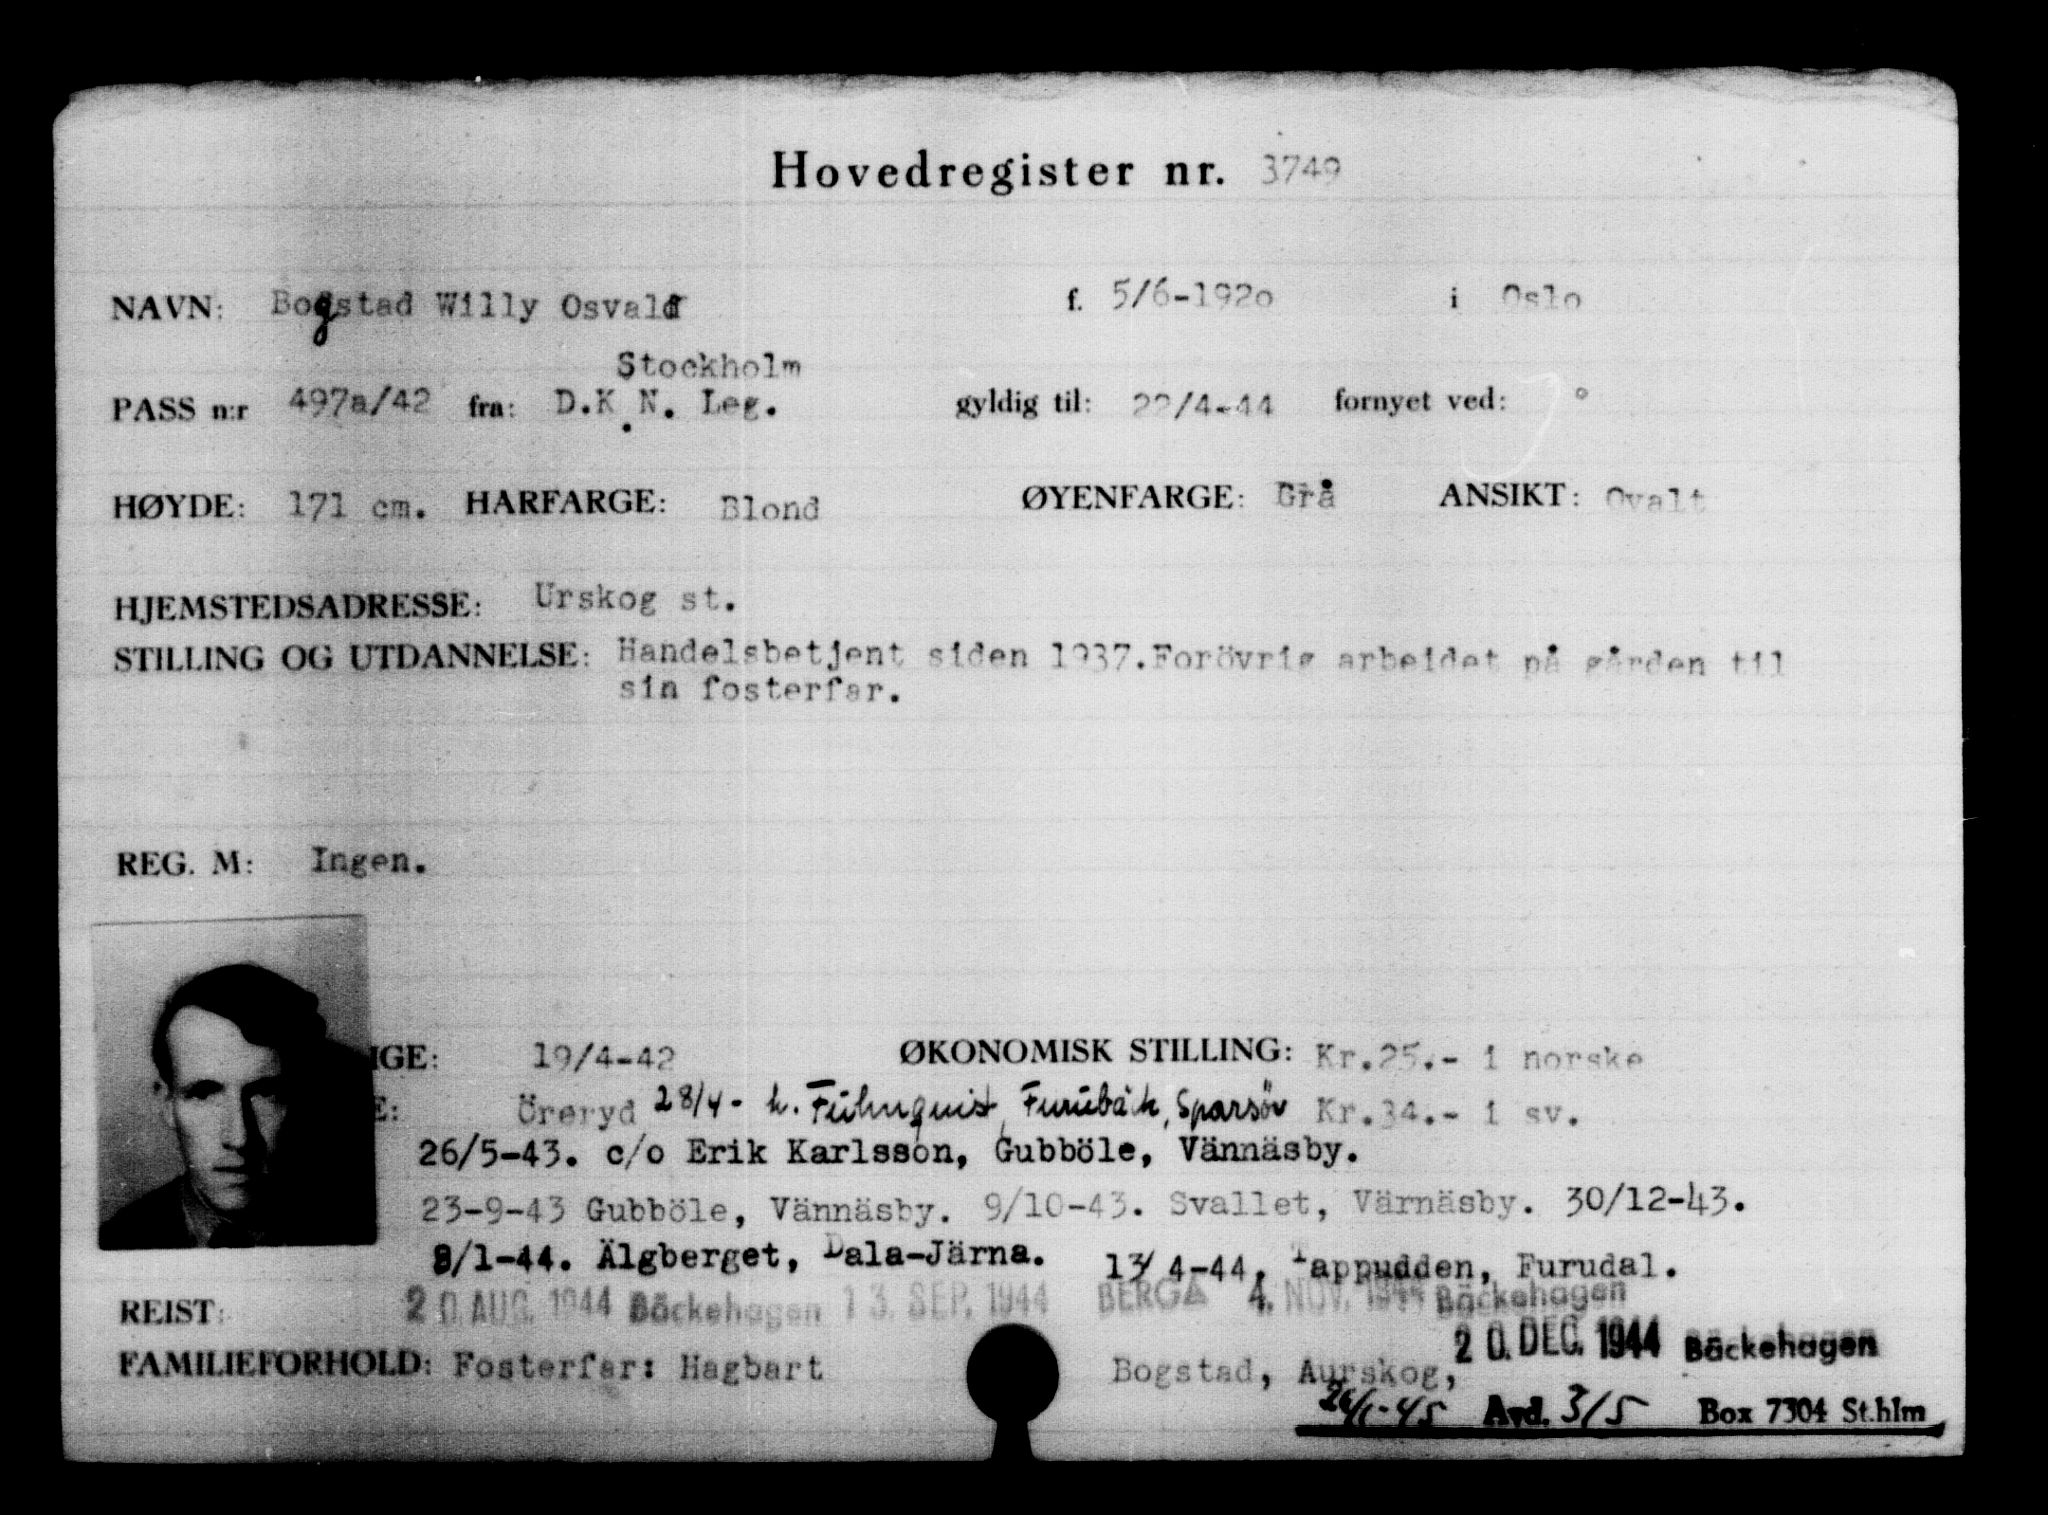 Hovedregister nr. 3749
NAVN: Bogstad Willy Osvald f. 5/6-1920 i Oslo
Stockholm
PASS n:r 497a/42 fra: D.K.N. Leg. gyldig til: 22/4-44 fornyet ved:
HØYDE: 171 cm. HARFARGE: Blond ØYENFARGE: Grå ANSIKT: Ovalt
HJEMSTEDSADRESSE: Urskog st.
STILLING OG UTDANNELSE: Handelsbetjent siden 1937.Forövrig arbeidet på gården til
sin fosterfar.
REG. M: Ingen.
IGE: 19/4-42 ØKONOMISK STILLING: Kr.25.- i norske
E: Öreryd 28/4- h. Furubäck, Sparsör Kr.34.- i sv.
26/5-43. c/o Erik Karlsson, Gubböle, Vännäsby.
23-9-43 Gubböle, Vännäsby. 9/10-43. Svallet, Värnäsby. 30/12-43.
8/1-44. Älgberget, Dala-Järna. 13/4-44, Tappudden, Furudal.
REIST: 20 AUG. 1944 Bäckehagen 13. SEP. 1944 BERGA 4. NOV. 1944 Bäckehagen
20. DEC. 1944 Bäckehagen
FAMILIEFORHOLD: Fosterfar: Hagbart Bogstad, Aurskog,
Avd. 3/5 Box 7304 St.hlm